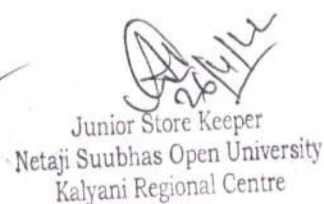 26/4/22
Junior Store Keeper
Netaji Suubhas Open University
Kalyani Regional Centre